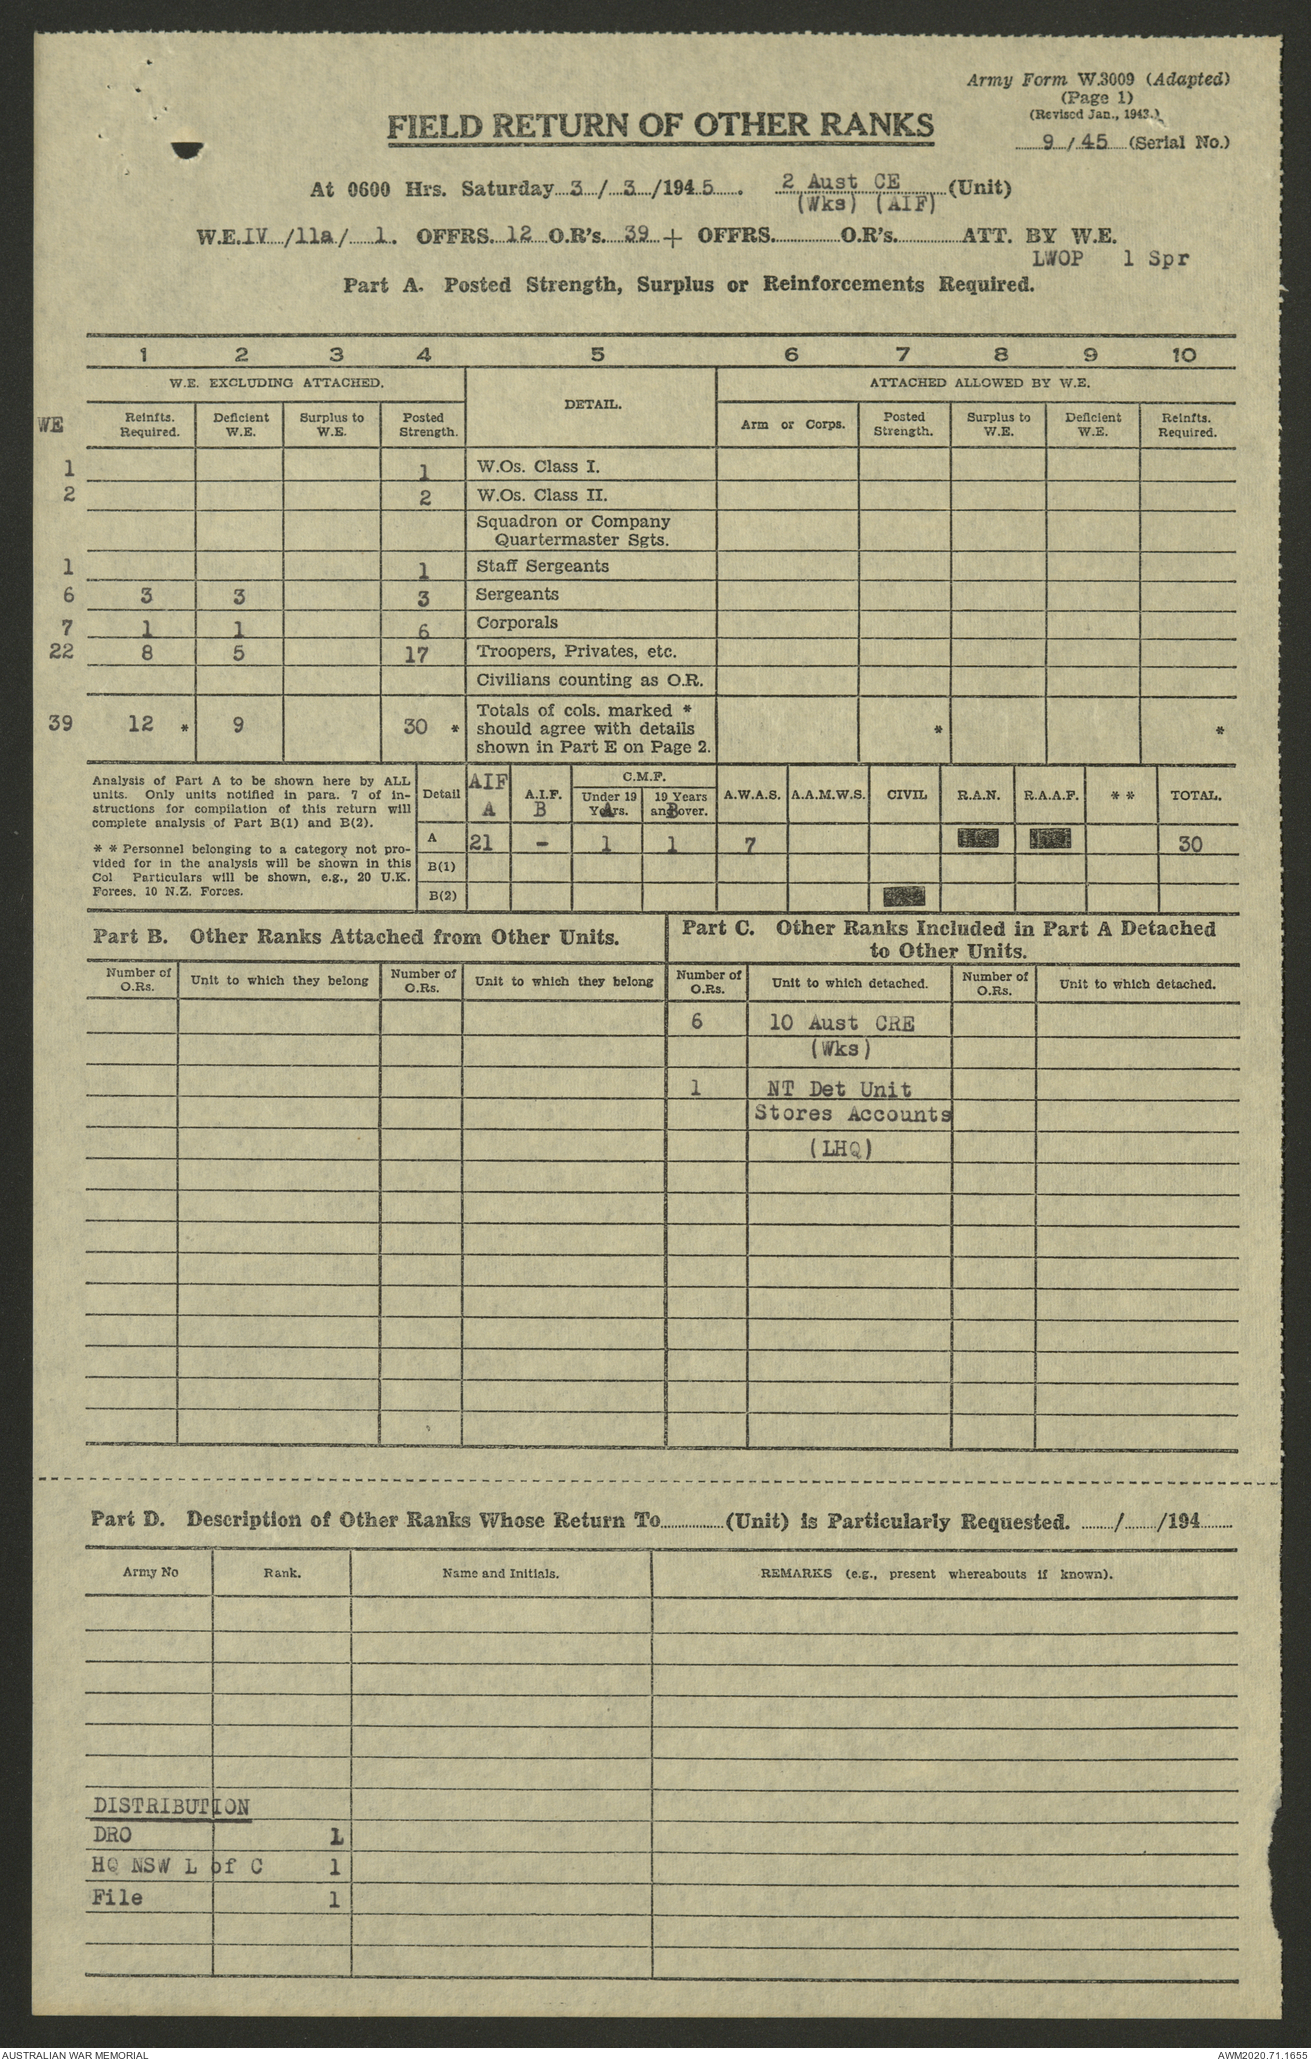 Army Form W.3009 (Adapted)
(Page 1)
(Revised Jan., 1943.)
9/45 (Serial No.)
FIELD RETURN OF OTHER RANKS
At 0600 Hrs. Saturday 3/3/1945. 2 Aust CE (Unit)
(Wks) (AIF)
W.E. IV/11a/1. OFFRS. 12 O.R's. 39 + OFFRS. O.R's. ATT. BY W.E.
LWOP 1 Spr
Part A. Posted Strength, Surplus or Reinforcements Required.
1 2 3 4 5 6 7 8 9 10
W.E. EXCLUDING ATTACHED. DETAIL. ATTACHED ALLOWED BY W.E.
WE Reinfts. Required. Deficient W.E. Surplus to W.E. Posted Strength. Arm or Corps. Posted Strength. Surplus to W.E. Deficient W.E. Reinfts. Required.
1 1 W.Os. Class I.
2 2 W.Os. Class II.
Squadron or Company
Quartermaster Sgts.
1 1 Staff Sergeants
6 3 3 3 Sergeants
7 1 1 6 Corporals
22 8 5 17 Troopers, Privates, etc.
Civilians counting as O.R.
Totals of cols. marked *
39 12 * 9 30 * should agree with details * *
shown in Part E on Page 2.
Analysis of Part A to be shown here by ALL
units. Only units notified in para. 7 of in-
structions for compilation of this return will
complete analysis of Part B(1) and B(2).
* * Personnel belonging to a category not pro-
vided for in the analysis will be shown in this
Col Particulars will be shown, e.g., 20 U.K.
Forces, 10 N.Z. Forces.
Detail AIF A A.I.F. B C.M.F. Under 19 Years. A 19 Years and over. B A.W.A.S. A.A.M.W.S. CIVIL R.A.N. R.A.A.F. * * TOTAL.
A 21 - 1 1 7 30
B(1)
B(2)
Part B. Other Ranks Attached from Other Units.
Part C. Other Ranks Included in Part A Detached
to Other Units.
Number of O.Rs. Unit to which they belong Number of O.Rs. Unit to which they belong Number of O.Rs. Unit to which detached. Number of O.Rs. Unit to which detached.
6 10 Aust CRE
(Wks)
1 NT Det Unit
Stores Accounts
(LHQ)
Part D. Description of Other Ranks Whose Return To (Unit) is Particularly Requested. / /194
Army No Rank. Name and Initials. REMARKS (e.g., present whereabouts if known).
DISTRIBUTION
DRO 1
HQ NSW L of C 1
File 1
AUSTRALIAN WAR MEMORIAL AWM2020.71.1655